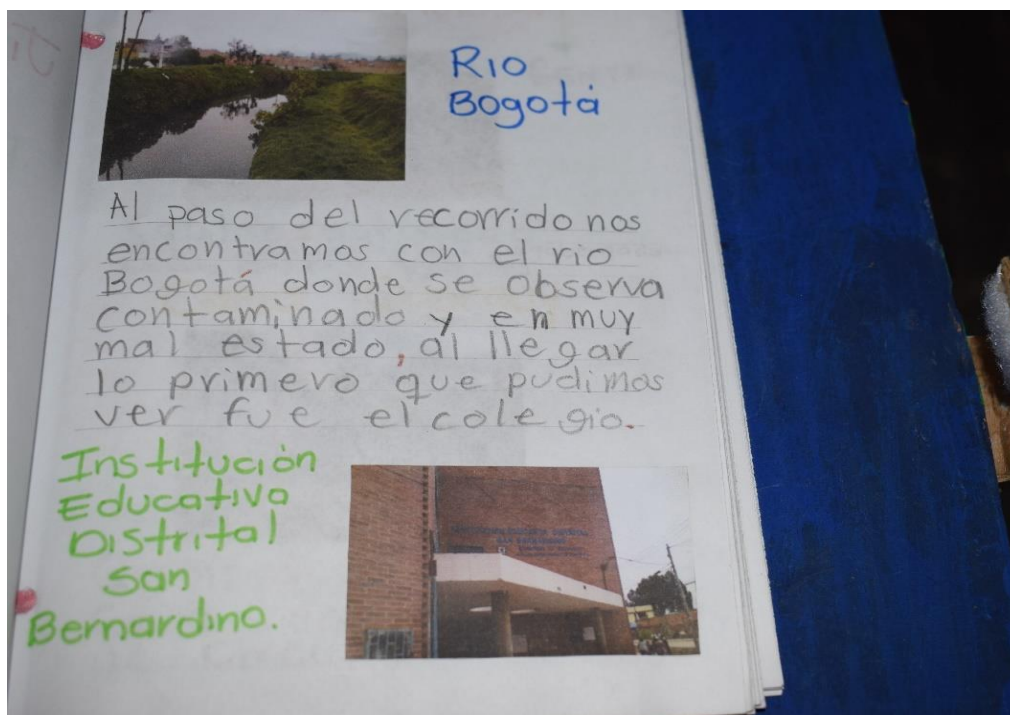 Rio
Bogotá
Al paso del recorrido nos
encontramos con el rio
Bogotá donde se observa
contaminado y en muy
mal estado, al llegar
lo primero que pudimos
ver fue el colegio.
Institución
Educativa
Distrital
San
Bernardino.